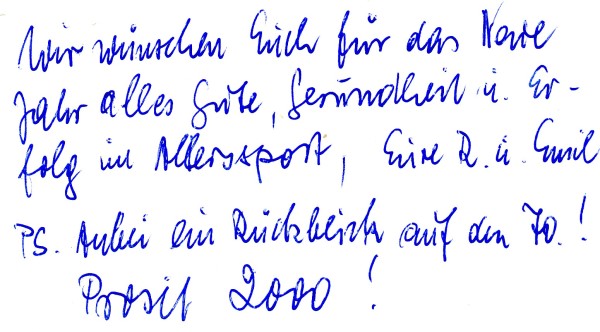 Wir wünschen Euch für das Neue
Jahr alles Gute, Gesundheit u. Er-
folg im Alterssport, Eure R. u. Emil
PS. Anbei ein Rückblick auf den 70.!
Prosit 2000!